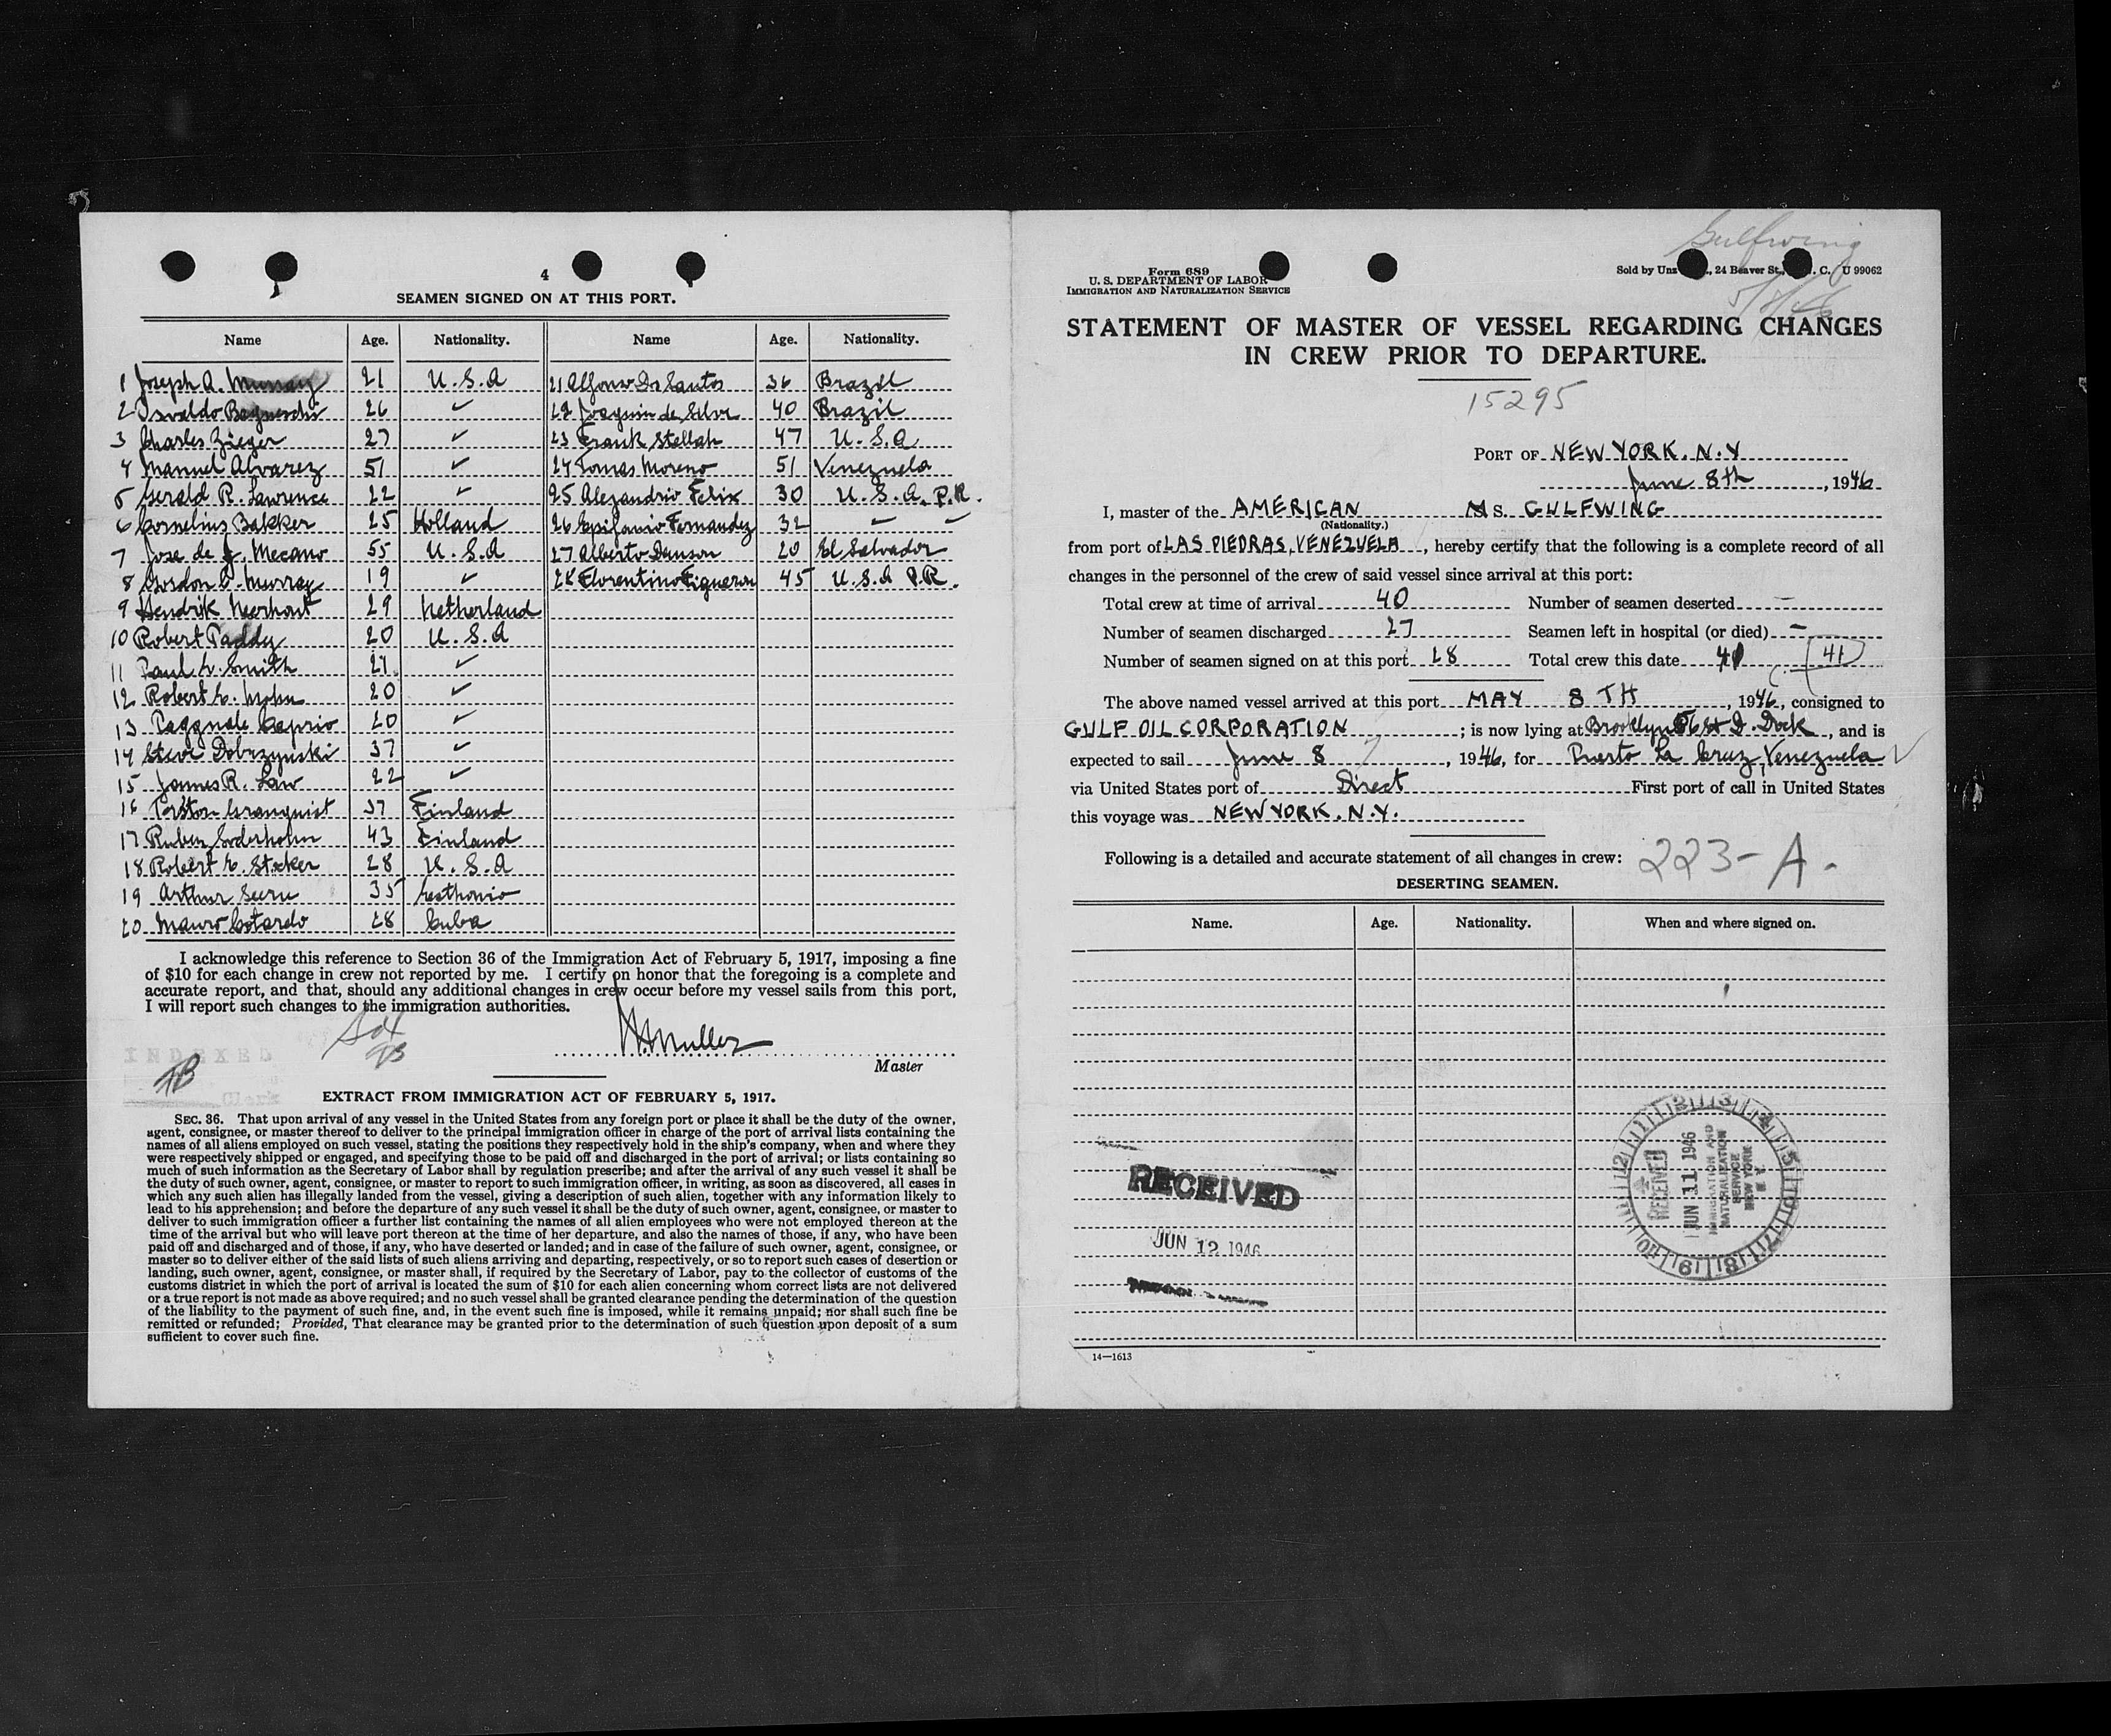 4
SEAMEN SIGNED ON AT THIS PORT.
Name Age. Nationality. Name Age. Nationality.
1 Joseph A. Murray 21 U.S.A
2 Osvaldo 26 ✓
3 Charles Zieger 27 ✓
4 Manuel Alvarez 51 ✓
5 Gerald R. Lawrence 22 ✓
6 Cornelius Bakker 25 Holland
7 Jose de J. Mecano 55 U.S.A
8 Gordon C. Murray 19 ✓
9 Hendrik Neerhout 29 Netherland
10 Robert Paddy 20 U.S.A
11 Paul W. Smith 21 ✓
12 Robert C. Mohn 20 ✓
13 Caprio 20 ✓
14 Steve Dobrzynski 37 ✓
15 James R. Law 22 ✓
16 Torston Granquist 37 Finland
17 Ruben Soderholm 43 Finland
18 Robert C. Stoker 28 U.S.A
19 Arthur 35 Esthonia
20 Mauro Cotardo 28 Cuba
21 Alfonso Dos Santos 36 Brazil
22 Joaquin de Silva 40 Brazil
23 Frank Stellah 47 U.S.A
24 Tomas Moreno 51 Venezuela
25 Alejandrio Felix 30 U.S.A. P.R.
26 Epifanio Fernandez 32 ✓ ✓
27 Alberto 20 El Salvador
28 Florentino Figueroa 45 U.S.A P.R.
I acknowledge this reference to Section 36 of the Immigration Act of February 5, 1917, imposing a fine
of $10 for each change in crew not reported by me. I certify on honor that the foregoing is a complete and
accurate report, and that, should any additional changes in crew occur before my vessel sails from this port,
I will report such changes to the immigration authorities.
INDEXED
Clerk
Muller
Master
EXTRACT FROM IMMIGRATION ACT OF FEBRUARY 5, 1917.
SEC. 36. That upon arrival of any vessel in the United States from any foreign port or place it shall be the duty of the owner,
agent, consignee, or master thereof to deliver to the principal immigration officer in charge of the port of arrival lists containing the
names of all aliens employed on such vessel, stating the positions they respectively hold in the ship's company, when and where they
were respectively shipped or engaged, and specifying those to be paid off and discharged in the port of arrival; or lists containing so
much of such information as the Secretary of Labor shall by regulation prescribe; and after the arrival of any such vessel it shall be
the duty of such owner, agent, consignee, or master to report to such immigration officer, in writing, as soon as discovered, all cases in
which any such alien has illegally landed from the vessel, giving a description of such alien, together with any information likely to
lead to his apprehension; and before the departure of any such vessel it shall be the duty of such owner, agent, consignee, or master to
deliver to such immigration officer a further list containing the names of all alien employees who were not employed thereon at the
time of the arrival but who will leave port thereon at the time of her departure, and also the names of those, if any, who have been
paid off and discharged and of those, if any, who have deserted or landed; and in case of the failure of such owner, agent, consignee, or
master so to deliver either of the said lists of such aliens arriving and departing, respectively, or so to report such cases of desertion or
landing, such owner, agent, consignee, or master shall, if required by the Secretary of Labor, pay to the collector of customs of the
customs district in which the port of arrival is located the sum of $10 for each alien concerning whom correct lists are not delivered
or a true report is not made as above required; and no such vessel shall be granted clearance pending the determination of the question
of the liability to the payment of such fine, and, in the event such fine is imposed, while it remains unpaid; nor shall such fine be
remitted or refunded; Provided, That clearance may be granted prior to the determination of such question upon deposit of a sum
sufficient to cover such fine.
Gulfwing
5/8/46
Form 689
U. S. DEPARTMENT OF LABOR
IMMIGRATION AND NATURALIZATION SERVICE
Sold by Unz , 24 Beaver St., . C. U 99062
STATEMENT OF MASTER OF VESSEL REGARDING CHANGES
IN CREW PRIOR TO DEPARTURE.
15295
PORT OF NEW YORK. N.Y
June 8th, 1946
I, master of the AMERICAN MS. GULFWING
(Nationality.)
from port of LAS PIEDRAS, VENEZUELA, hereby certify that the following is a complete record of all
changes in the personnel of the crew of said vessel since arrival at this port:
Total crew at time of arrival 40 Number of seamen deserted —
Number of seamen discharged 27 Seamen left in hospital (or died) —
Number of seamen signed on at this port 28 Total crew this date 41 (41)
The above named vessel arrived at this port MAY 8TH, 1946, consigned to
GULF OIL CORPORATION; is now lying at Brooklyn 56 st D. Dock, and is
expected to sail June 8, 1946, for Puerto La Cruz, Venezuela ✓
via United States port of Direct First port of call in United States
this voyage was NEW YORK. N.Y.
Following is a detailed and accurate statement of all changes in crew: 223-A.
DESERTING SEAMEN.
Name. Age. Nationality. When and where signed on.
RECEIVED
JUN 12 1946
RECEIVED
JUN 11 1946
IMMIGRATION AND
NATURALIZATION
SERVICE
NEW YORK
N. Y.
14—1613